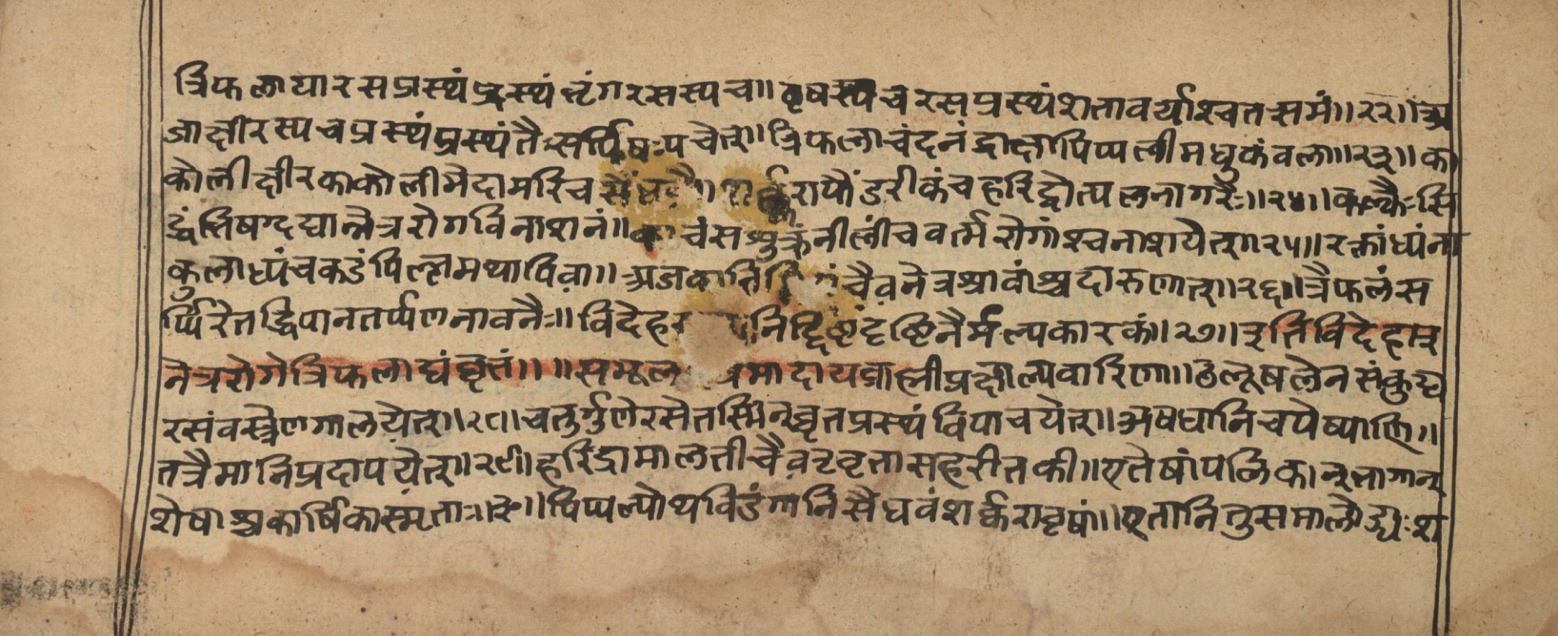 त्रिफलाया रसप्रस्थं प्रस्थं भृंगरसस्य च॥ वृषस्य च रसप्रस्थं शतावर्याश्च तत्समं॥२२॥ अ
जाक्षीरस्य च प्रस्थं प्रस्थं तैः सर्पिषः पचेत्॥ त्रिफला चंदनं द्राक्षा पिप्पली मधुकं वला॥२३॥ का
कोली क्षीरकाकोली मेदा मरिच शर्करा पौंडरीकं च हरिद्रोत्पलनागरैः॥२४॥ कल्कैः सि
द्धं भिषग्दद्यान्नेत्ररोगविनाशनं॥ काचं सशुक्रं नीलीं च वर्त्मरोगांश्च नाशयेत्॥२५॥ रक्तांध्यं न
कुलाध्यं च कडं पिल्लमथापि वा॥ अजका चैव नेत्रश्रावांश्च दारुणात्॥२६॥ त्रैफलं स
र्प्पिरेतद्धि पानतर्प्पणनावनैः॥ विदेह निर्द्दिष्टं दृष्टिनैर्मल्यकारकं॥२७॥ इति विदेहात्
नेत्ररोगे त्रिफलाद्यं घृतं॥ ॥समूल मादाय ब्राह्मी प्रक्षाल्य वारिणा॥ उलूषलेन संकुट्य
रसं वस्त्रेण गालयेत्॥२८॥ चतुर्गुणे रसे तस्मिन् घृतप्रस्थं विपाचयेत्॥ औषधानि च पेष्याणि॥
तत्रैमानि प्रदापयेत्॥२९॥ हरिद्रा मालती चैव तृवृता सहरीतकी॥ एतेषां पलिकान् भागान्
शेषाश्च कार्षिका स्मृताः॥३०॥ पिप्पल्योथ विडंगानि सैंधवं शर्करा वृषां॥ एतानि तु समालोड्य श